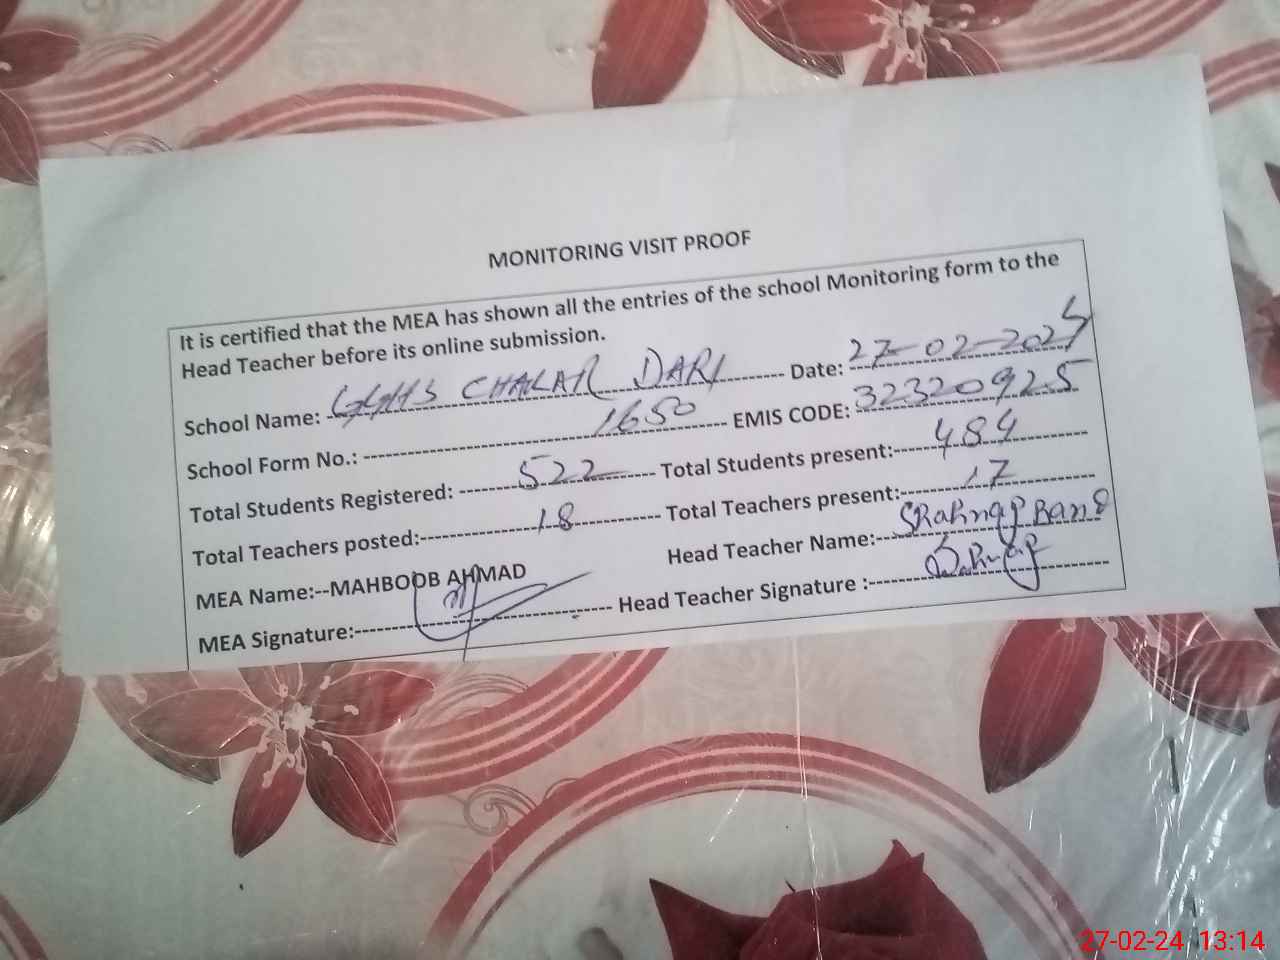 MONITORING VISIT PROOF
It is certified that the MEA has shown all the entries of the school Monitoring form to the
Head Teacher before its online submission.
School Name: GGHS CHALAR DARI Date: 27-02-2024
School Form No.: 1650 EMIS CODE: 32320925
Total Students Registered: 522 Total Students present: 484
Total Teachers posted: 18 Total Teachers present: 17
MEA Name:--MAHBOOB AHMAD Head Teacher Name:
MEA Signature: Head Teacher Signature :
27-02-24 13:14